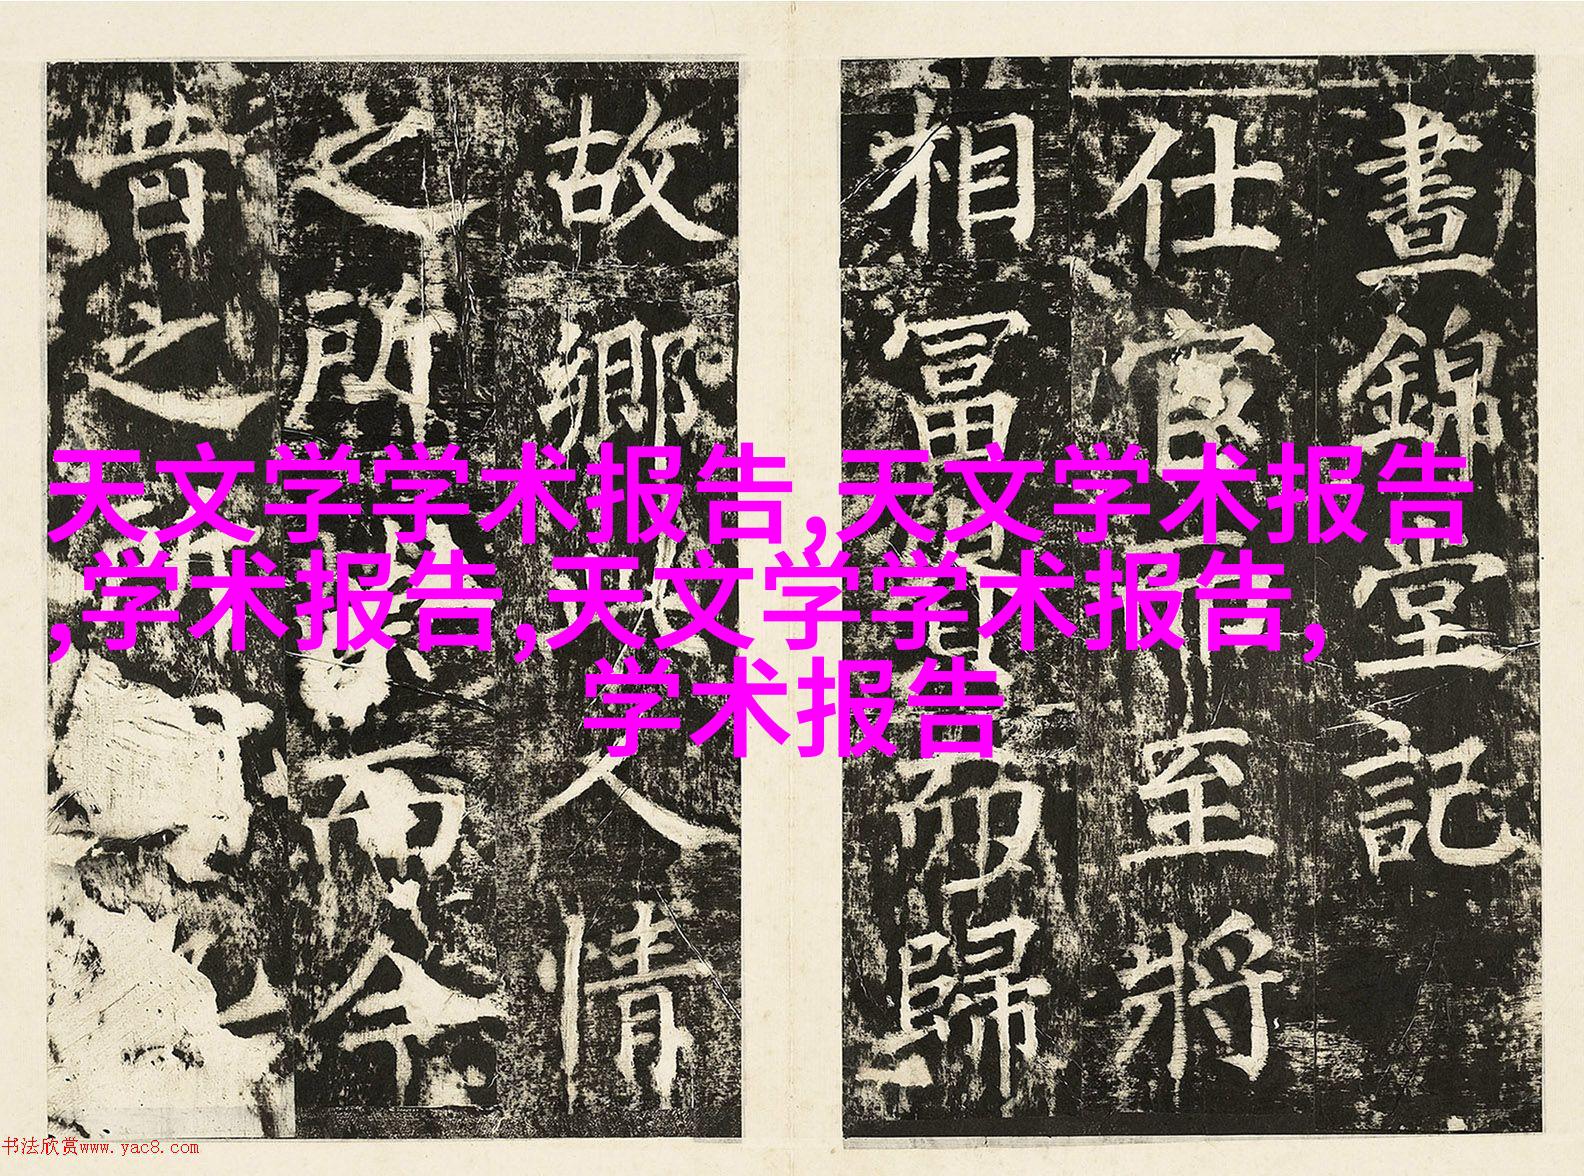 晝錦堂記
仕至將
相冨而歸
故鄉人情
之所而今
昔之所
天文学学术报告,天文学术报告
,学术报告,天文学学术报告,
学术报告
书法欣赏www.yac8.com